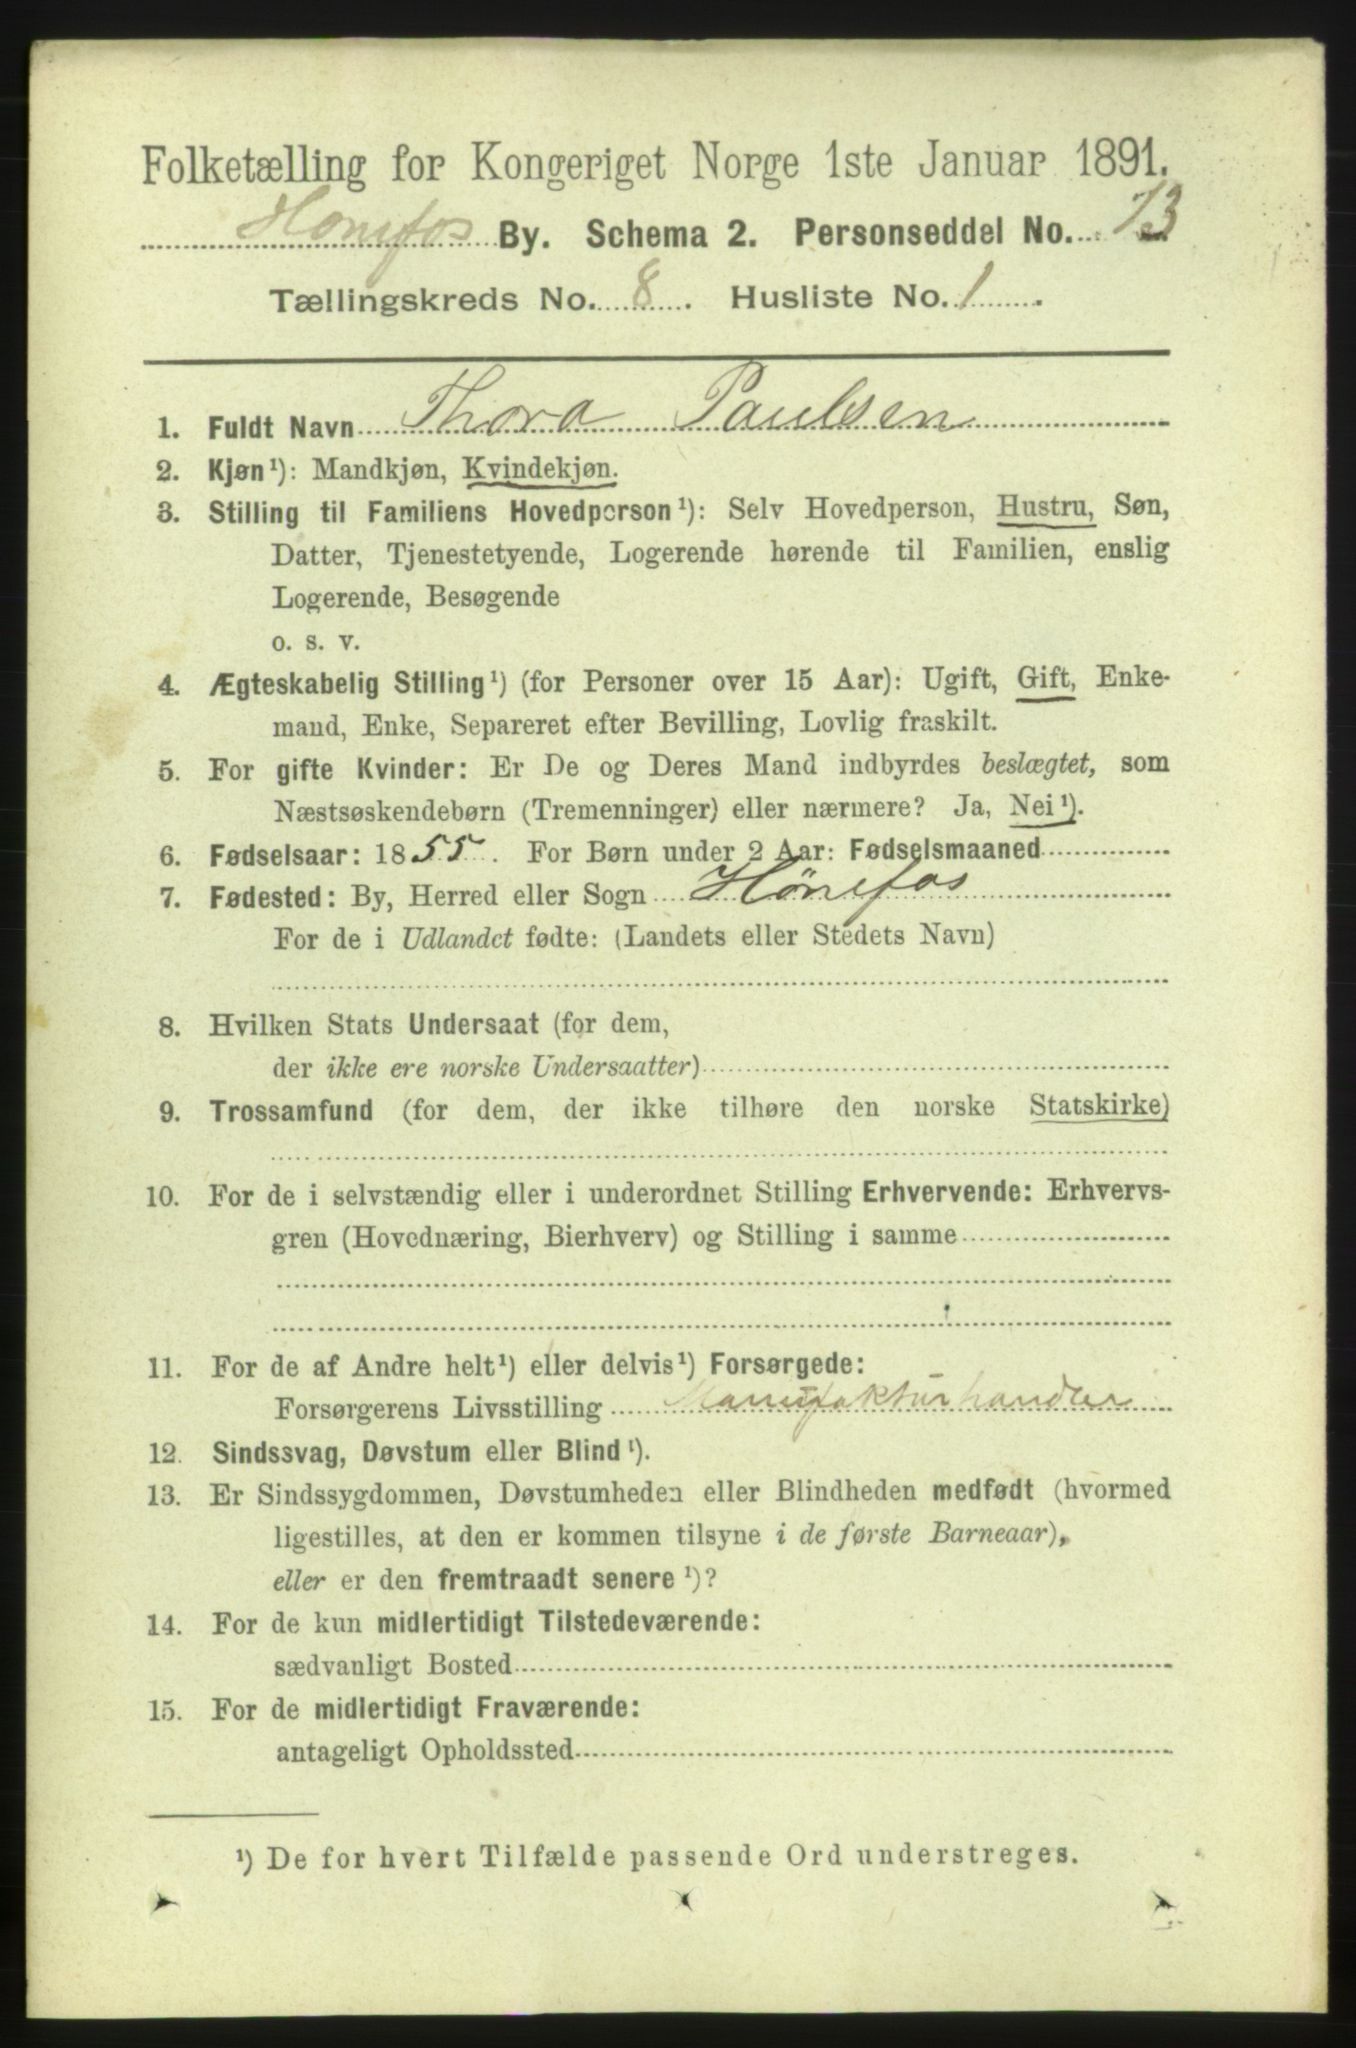 Folketælling for Kongeriget Norge 1ste Januar 1891.
Hønefos By. Schema 2. Personseddel No. 13
Tællingskreds No. 8. Husliste No. 1.
1. Fuldt Navn Thora Paulsen
2. Kjøn¹): Mandkjøn, Kvindekjøn.
3. Stilling til Familiens Hovedperson¹): Selv Hovedperson, Hustru, Søn,
Datter, Tjenestetyende, Logerende hørende til Familien, enslig
Logerende, Besøgende
o. s. v.
4. Ægteskabelig Stilling¹) (for Personer over 15 Aar): Ugift, Gift, Enke-
mand, Enke, Separeret efter Bevilling, Lovlig fraskilt.
5. For gifte Kvinder: Er De og Deres Mand indbyrdes beslægtet, som
Næstsøskendebørn (Tremenninger) eller nærmere? Ja, Nei¹).
6. Fødselsaar: 1855. For Børn under 2 Aar: Fødselsmaaned
7. Fødested: By, Herred eller Sogn Hönefos
For de i Udlandet fødte: (Landets eller Stedets Navn)
8. Hvilken Stats Undersaat (for dem,
der ikke ere norske Undersaatter)
9. Trossamfund (for dem, der ikke tilhøre den norske Statskirke)
10. For de i selvstændig eller i underordnet Stilling Erhvervende: Erhvervs-
gren (Hovednæring, Bierhverv) og Stilling i samme
11. For de af Andre helt¹) eller delvis¹) Forsørgede:
Forsørgerens Livsstilling Manufakturhandler
12. Sindssvag, Døvstum eller Blind¹).
13. Er Sindssygdommen, Døvstumheden eller Blindheden medfødt (hvormed
ligestilles, at den er kommen tilsyne i de første Barneaar),
eller er den fremtraadt senere¹)?
14. For de kun midlertidigt Tilstedeværende:
sædvanligt Bosted
15. For de midlertidigt Fraværende:
antageligt Opholdssted
¹) De for hvert Tilfælde passende Ord understreges.